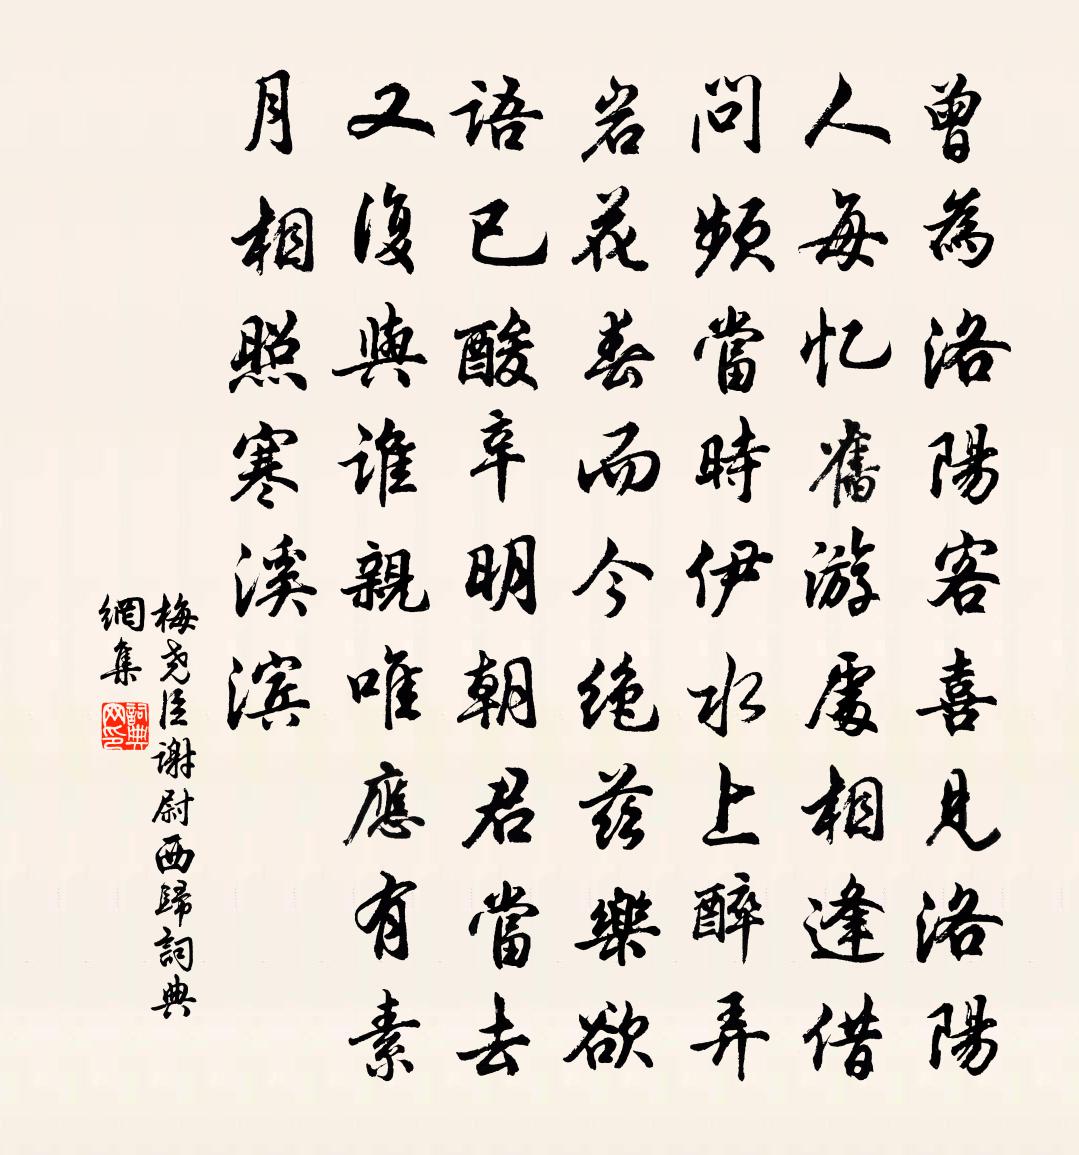 曾為洛陽客喜見洛陽
人每忆舊游處相逢借
問頻當時伊水上醉弄
岩花春而今绝兹樂欲
語已酸辛明朝君當去
又復與誰親唯應有素
月相照寒溪滨
梅尧臣谢尉西歸詞典
網集
詞典
网印